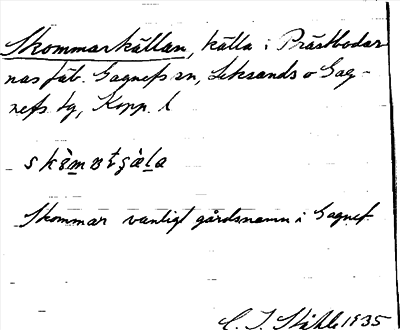 Skommarkällan, källa i Prästbodar
nas fäb. Gagnefs sn, Leksands o Gag-
nefs tg, Kopp. l
Skommar vanligt gårdsnamn i Gagnef.
C. I. Ståhle 1935